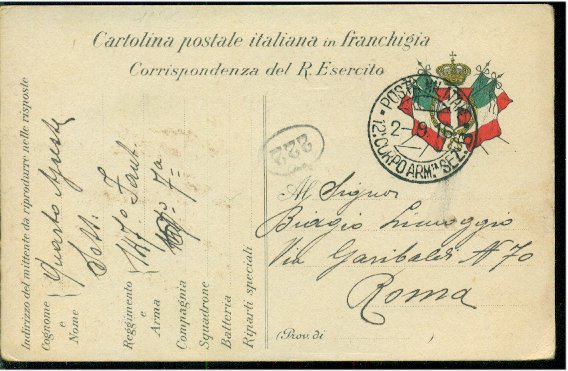 Cartolina postale italiana in franchigia
Corrispondenza del R. Esercito
POSTA MILITARE
12° CORPO ARMTA SEZ.
2-
222
Al Signor
Biagio
Via Garibaldi N 70
Roma
(Prov. di
Indirizzo del mittente da riprodurre nelle risposte
Cognome e Nome { Quarto
Sott.
Reggimento e Arma { 147° Fant.
Compagnia 7a
Squadrone
Batteria
Riparti speciali